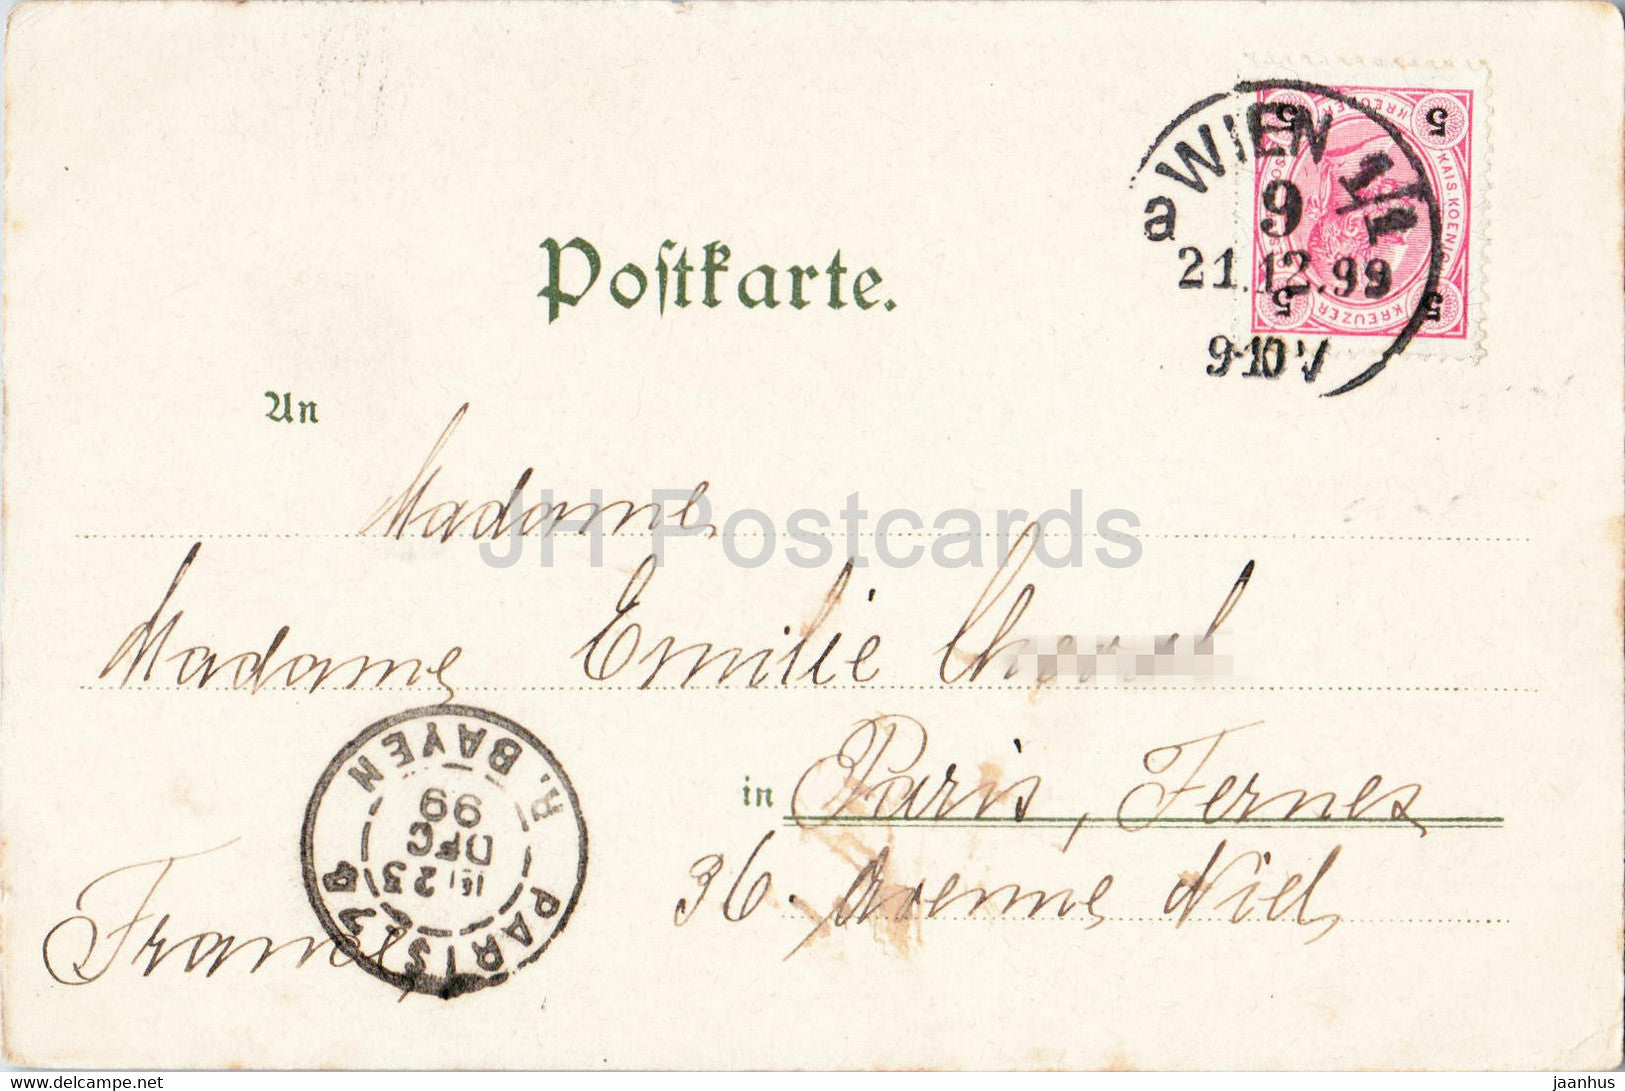 a WIEN 1/1
9
21.12.99
9-10 V
5 5 5 5
KAIS. KOENIG.
KREUZER KREUZER
Postkarte.
An
Madame
JH Postcards
Madame Emilie
in Paris, Ternes
36. Avenue Niel
France
PARIS 74
23
DEC
99
R. BAYEN
www.delcampe.net
jaanhus